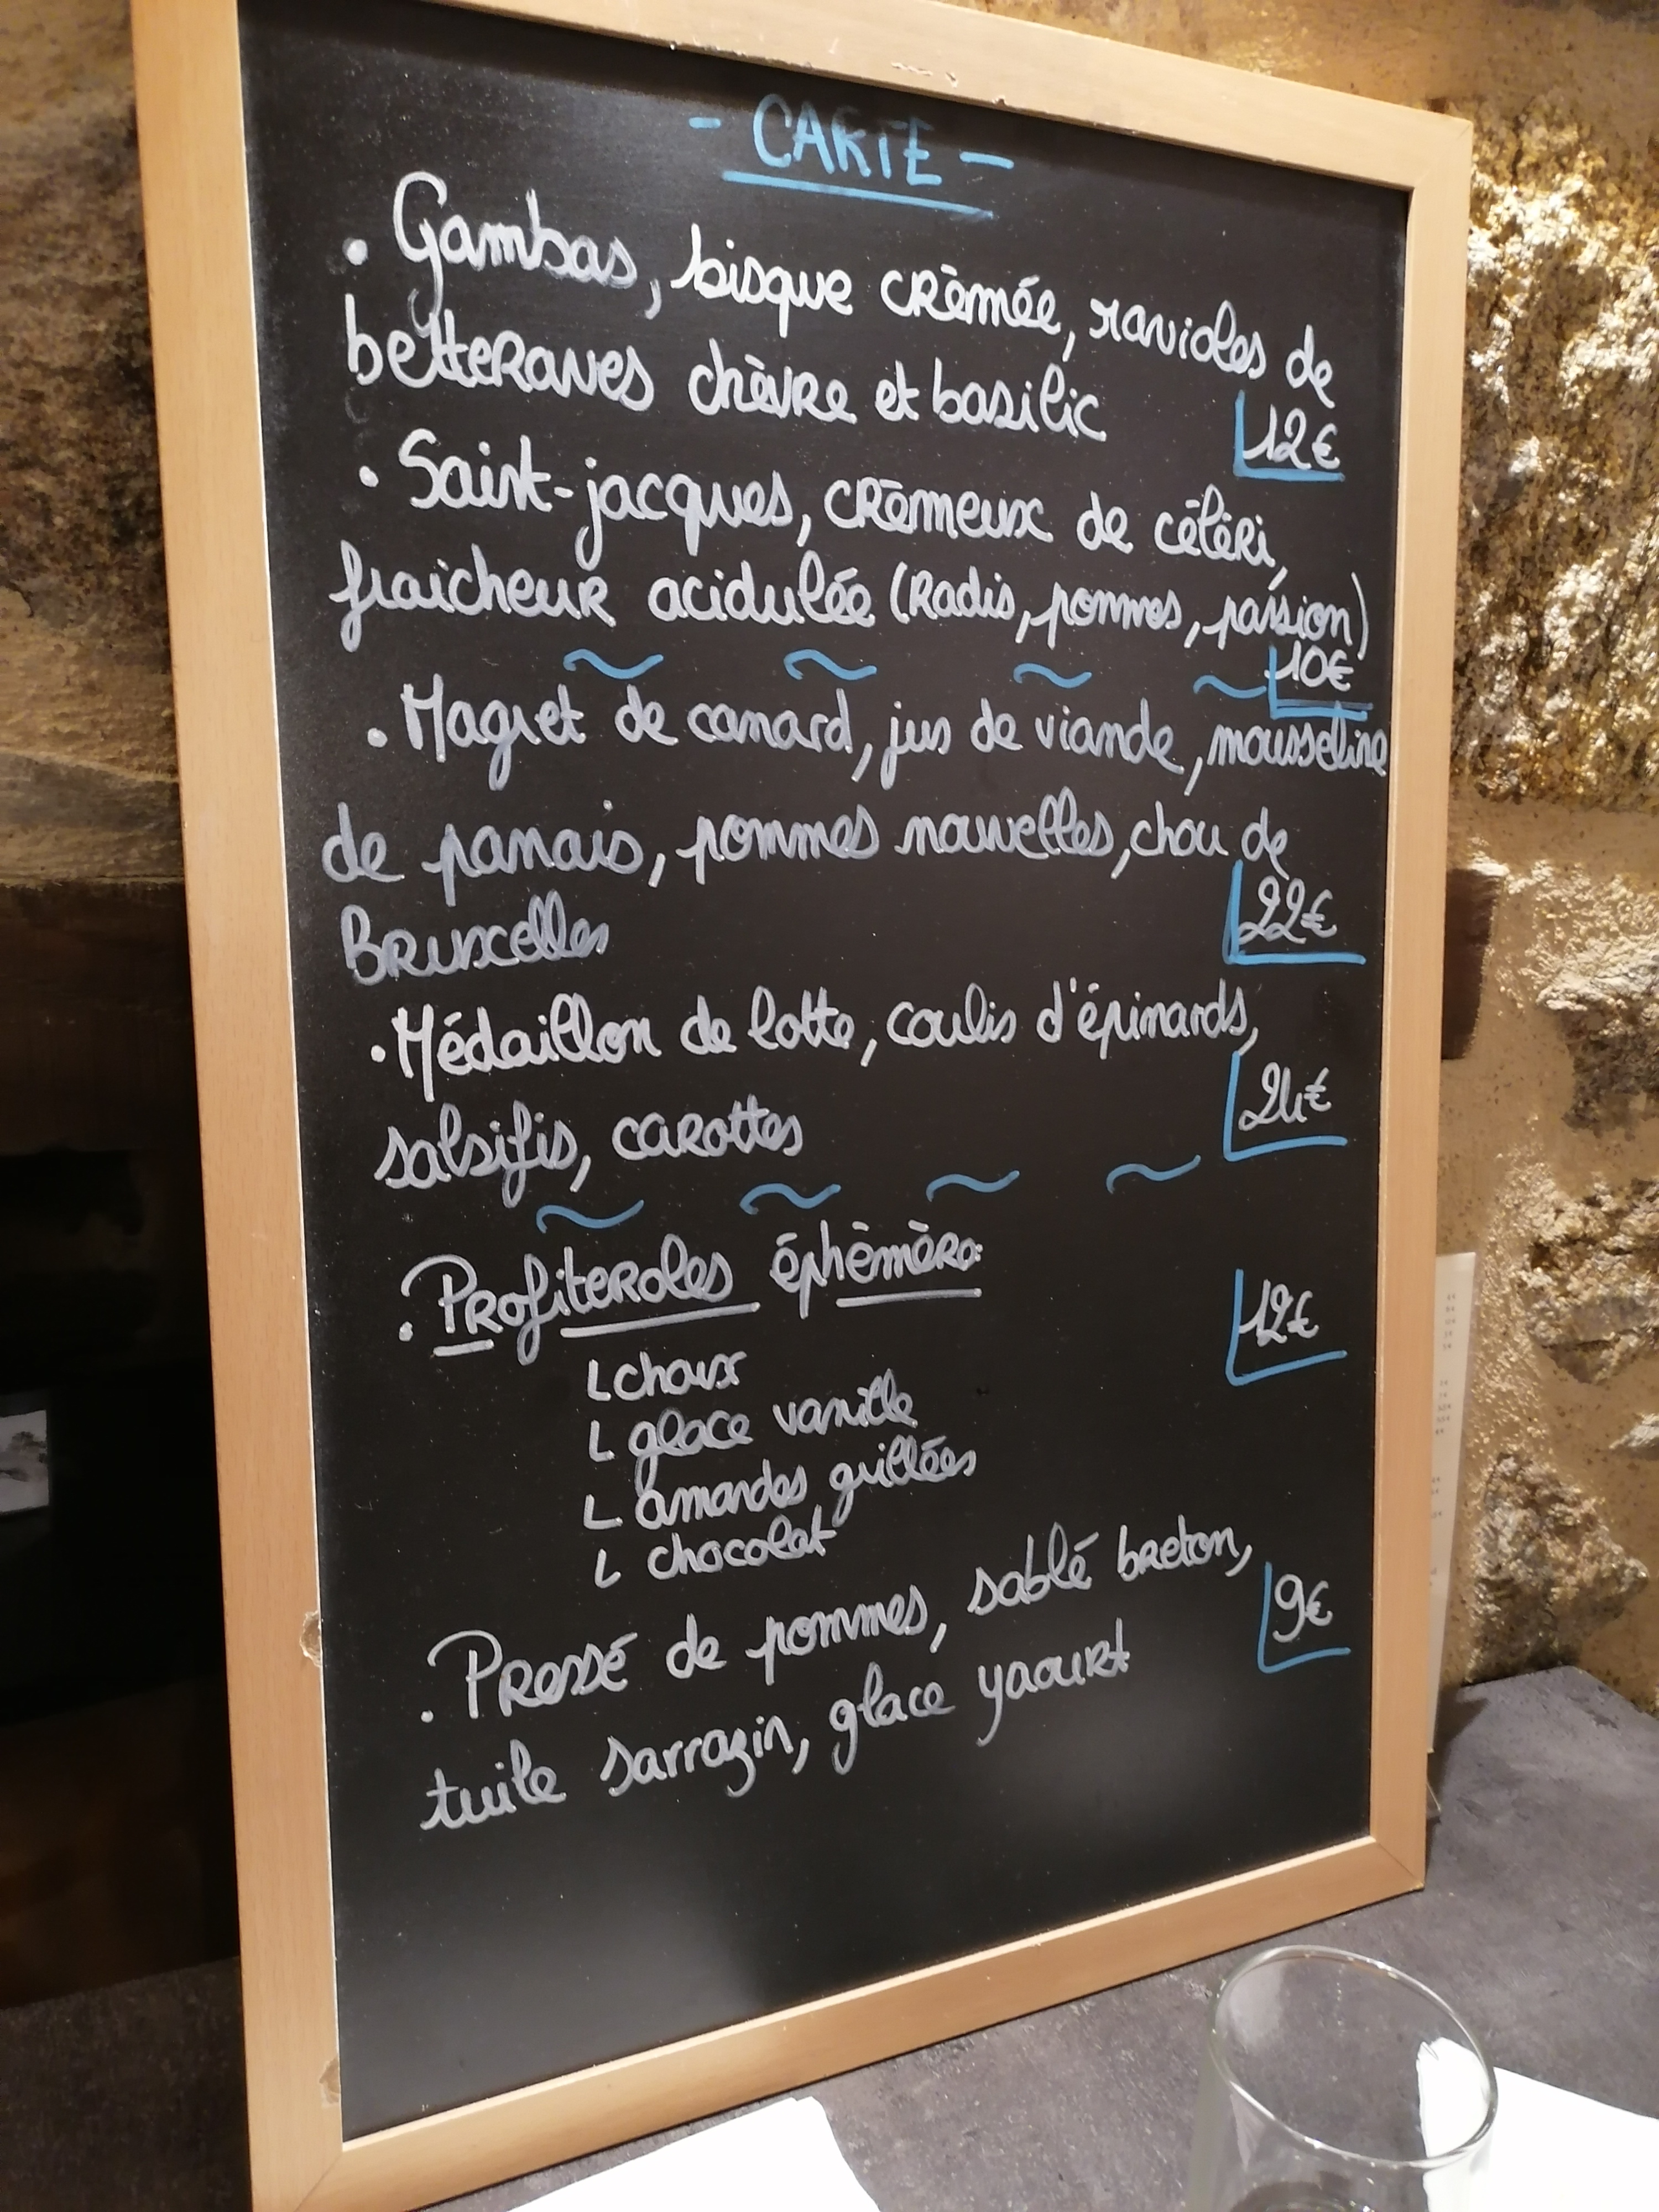 - CARTE -
• Gambas, bisque crèmée, ravioles de
betteraves chèvre et basilic
12€
• Saint-jacques, crèmeux de céléri,
fraicheur acidulée (Radis, pommes, passion)
10€
~ ~ ~ ~
• Magret de canard, jus de viande, mousseline
de panais, pommes nouvelles, chou de
Bruxelles
22€
• Médaillon de lotte, coulis d'épinards,
24€
salsifis, carottes
~ ~ ~ ~
• Profiteroles éphèmère:
12€
L choux
L glace vanille
L amandes grillées
L chocolat
• Pressé de pommes, sablé breton,
9€
tuile sarrazin, glace yaourt